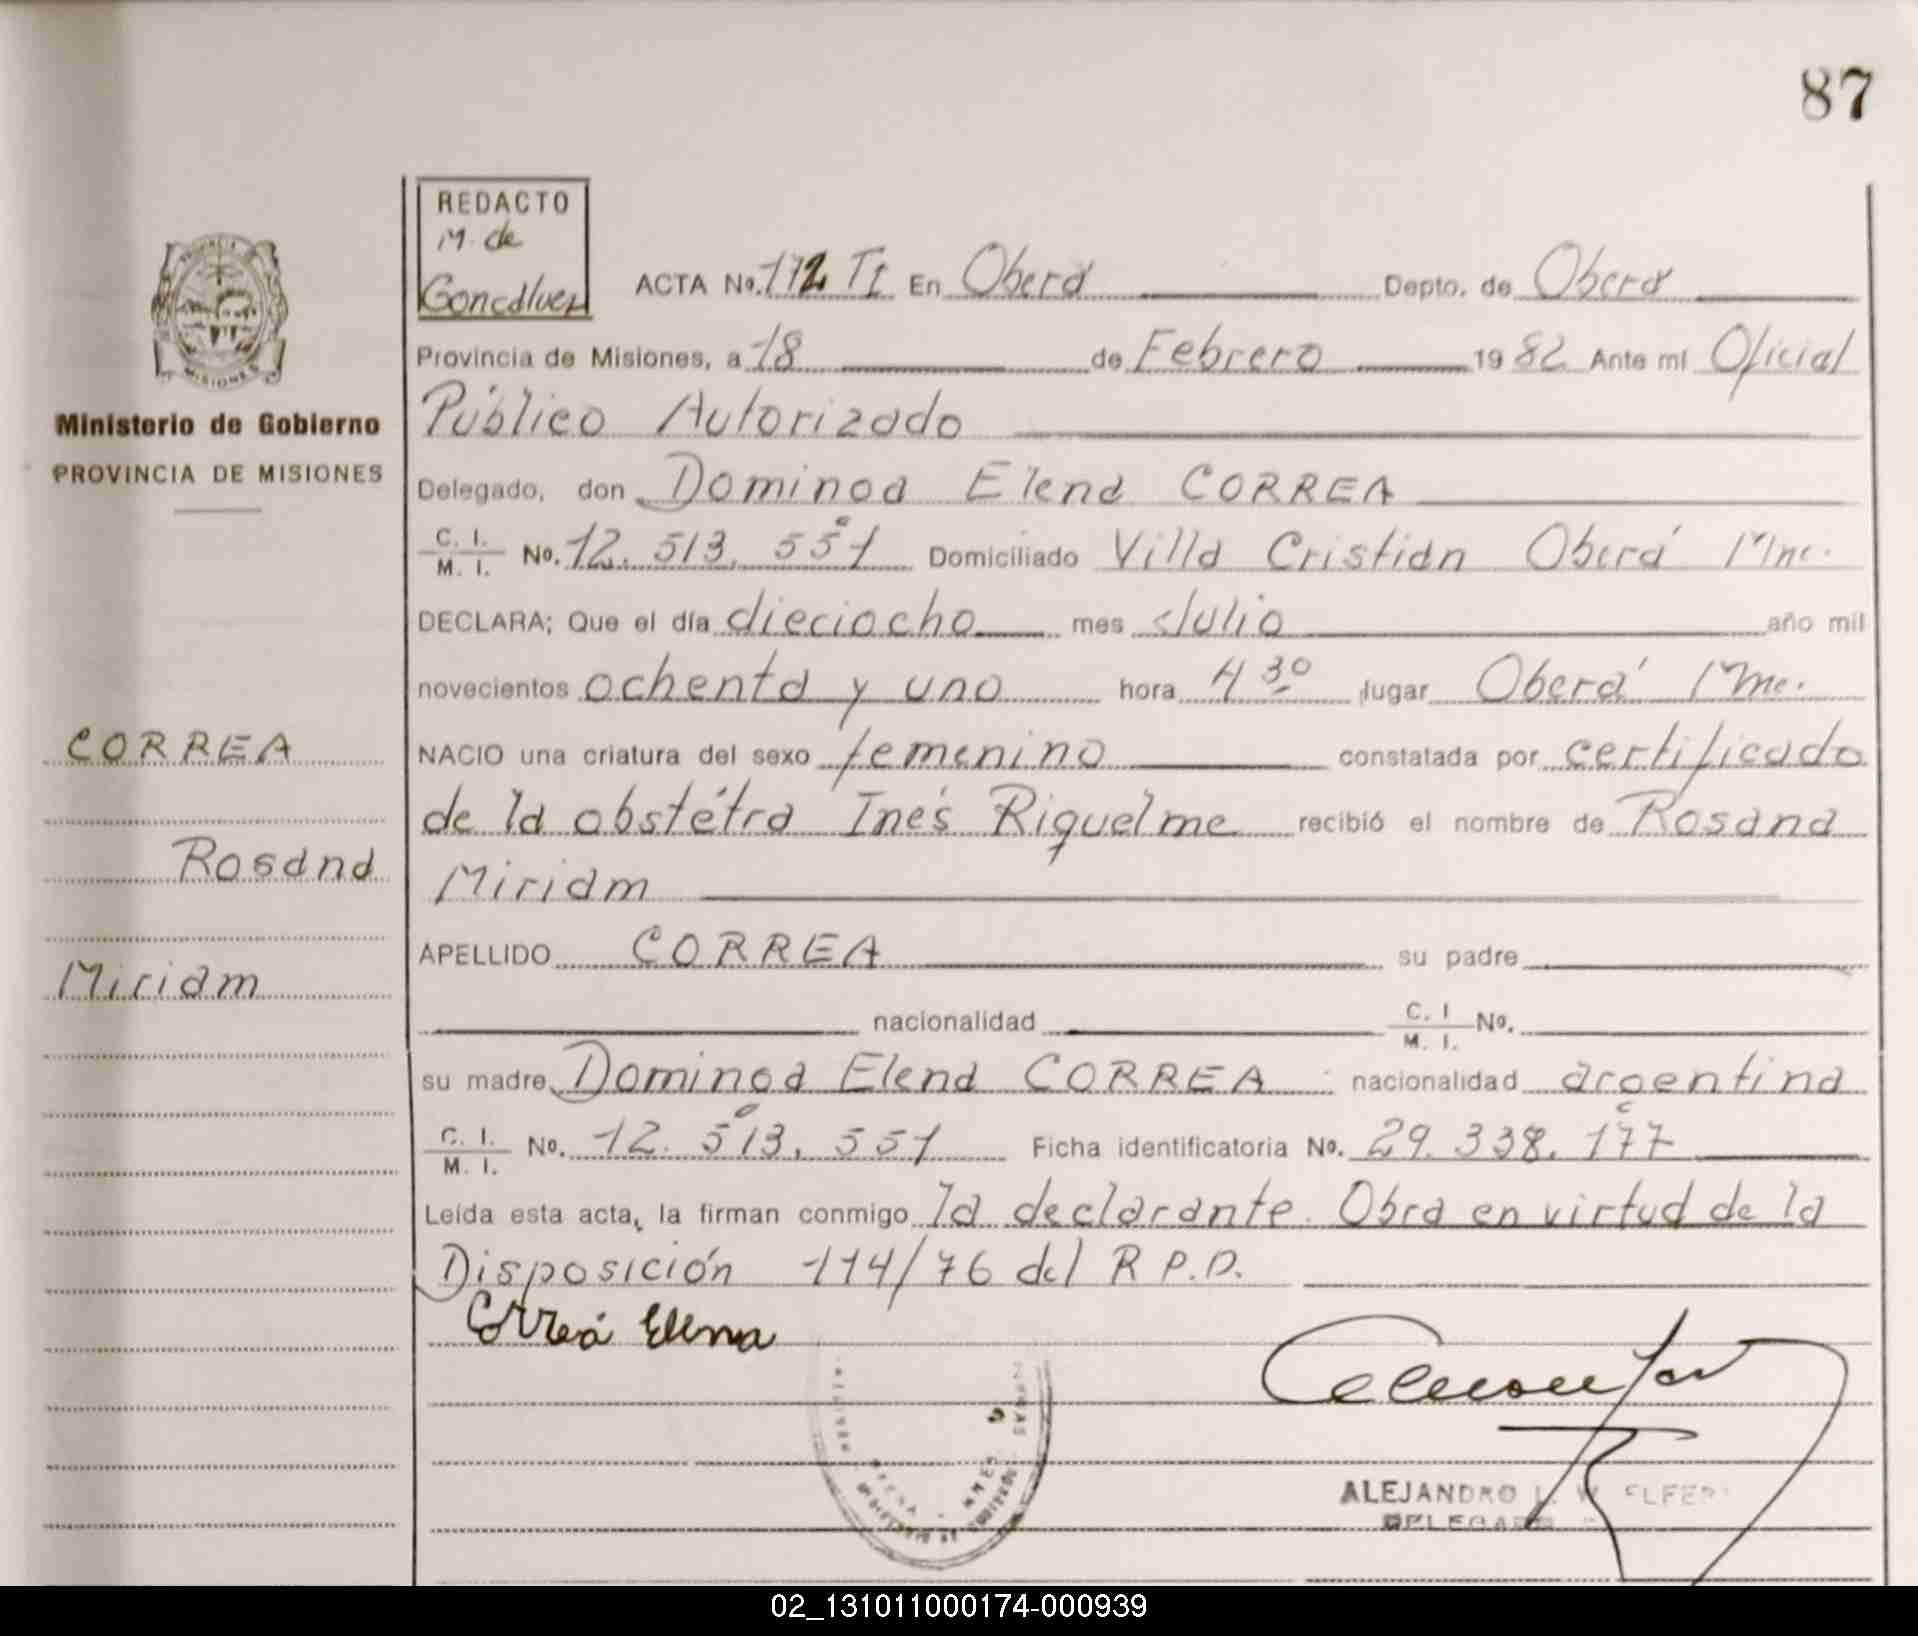 87
REDACTO
M. de
Goncalvez
ACTA No. 172 TI En Oberá Depto. de Oberá
Provincia de Misiones, a 18 de Febrero 1982 Ante mí Oficial
Público Autorizado
Ministerio de Gobierno
PROVINCIA DE MISIONES
MISIONES
Delegado, don Dominga Elena CORREA
C. I. / M. I. No. 12.513.551 Domiciliado Villa Cristian Oberá Mnes.
DECLARA; Que el día dieciocho mes Julio año mil
novecientos ochenta y uno hora 4 30 lugar Oberá Mnes.
CORREA
NACIO una criatura del sexo femenino constatada por certificado
de la obstétra Inés Riquelme recibió el nombre de Rosana
Rosana
Miriam
APELLIDO CORREA su padre
Miriam
nacionalidad C. I / M. I. No.
su madre Dominga Elena CORREA nacionalidad argentina
C. I. / M. I. No. 12.513.551 Ficha identificatoria No. 29.338.177
Leída esta acta, la firman conmigo la declarante. Obra en virtud de la
Disposición 114/76 del R.P.D.
Correá Elena
ALEJANDRO
DELEGADO
02_131011000174-000939